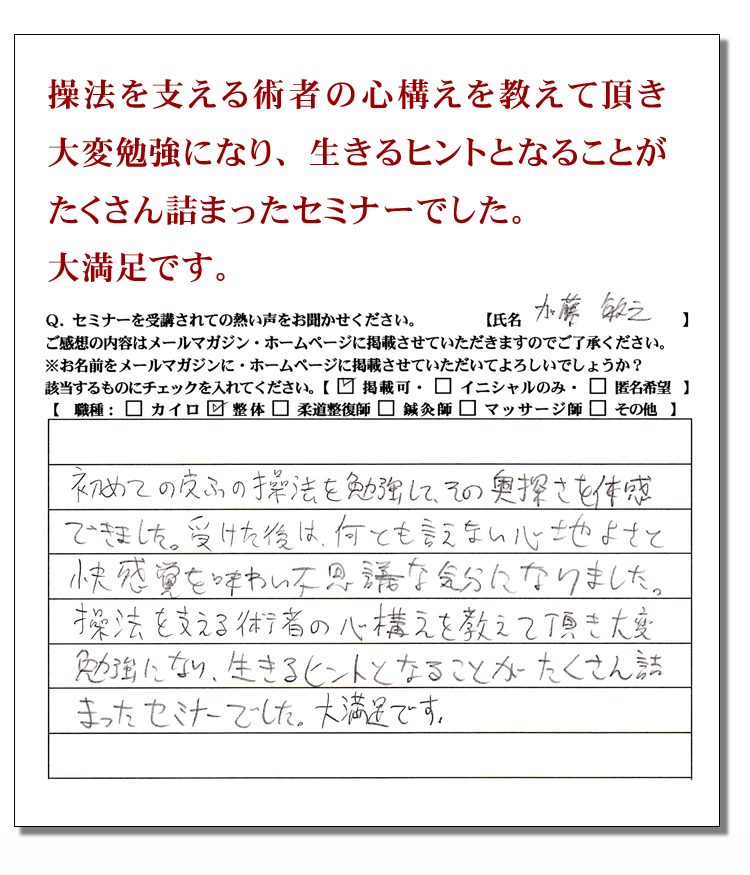 操法を支える術者の心構えを教えて頂き
大変勉強になり、生きるヒントとなることが
たくさん詰まったセミナーでした。
大満足です。
Q. セミナーを受講されての熱い声をお聞かせください。 【氏名 加藤 敏之 】
ご感想の内容はメールマガジン・ホームページに掲載させていただきますのでご了承ください。
※お名前をメールマガジンに・ホームページに掲載させていただいてよろしいでしょうか？
該当するものにチェックを入れてください。【 ☑ 掲載可・ □ イニシャルのみ・ □ 匿名希望 】
【 職種： □ カイロ ☑ 整体 □ 柔道整復師 □ 鍼灸師 □ マッサージ師 □ その他 】
初めての皮ふの操法を勉強して、その奥深さを体感
できました。受けた後は、何とも言えない心地よさと
快感覚を味わい不思議な気分になりました。
操法を支える術者の心構えを教えて頂き大変
勉強になり、生きるヒントとなることがたくさん詰
まったセミナーでした。大満足です。